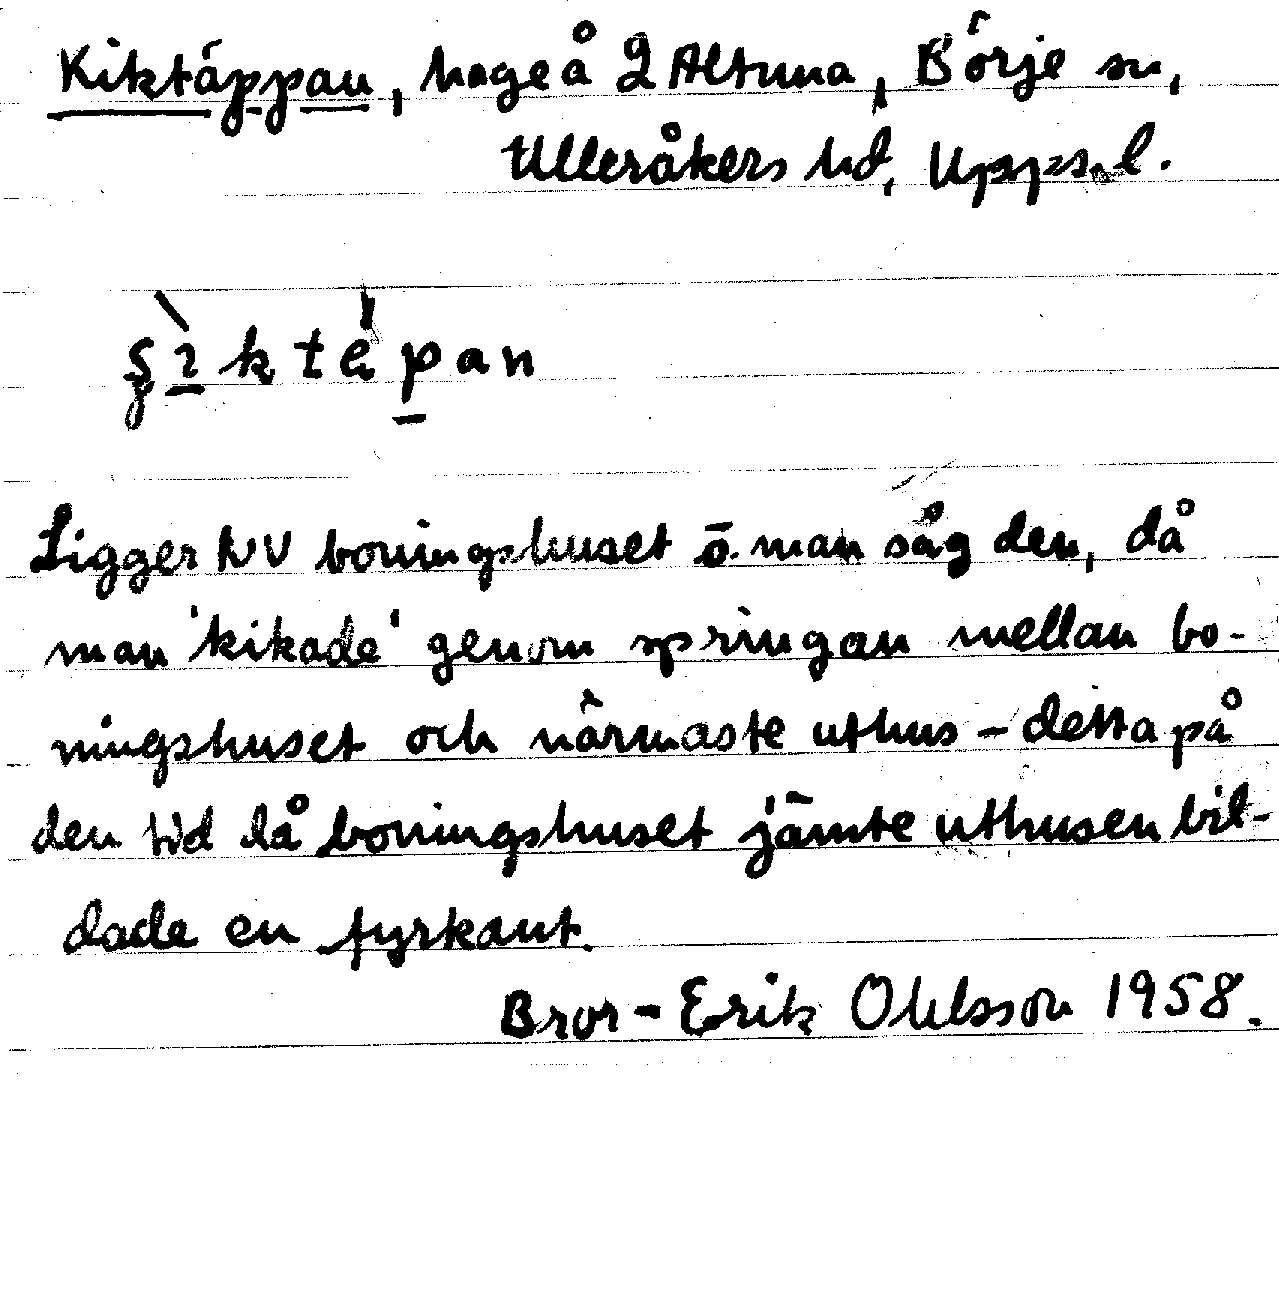 Kiktäppan, hage å 2 Altuna, Börje sn,
Ulleråkers hd, Upps. l.
ʂ̀ɩktépan
Ligger NV boningshuset o. man såg den, då
man 'kikade' genom springan mellan bo-
ningshuset och närmaste uthus – detta på
den tid då boningshuset jämte uthusen bil-
dade en fyrkant.
Bror-Erik Ohlsson 1958.